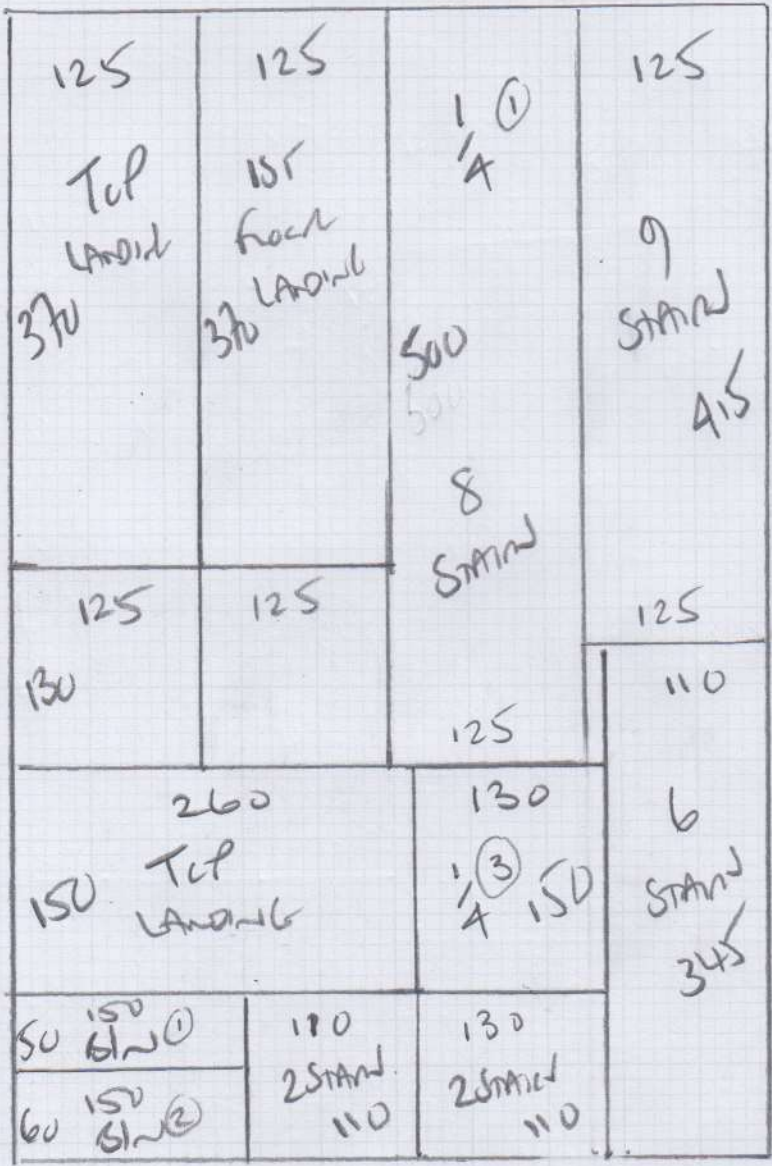 125
TOP
LANDING
370
125
1ST
FLOOR
LANDING
370
1/4 ①
500
500
8
STAIRS
125
125
9
STAIRS
415
125
125
130
125
110
6
STAIRS
345
260
150 TOP
LANDING
130
1/4 ③ 150
50 150
①
60 150
②
110
2 STAIRS
110
130
2 STAIRS
110